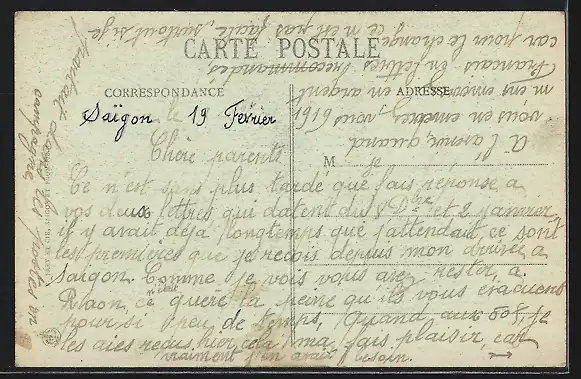 CARTE POSTALE
CORRESPONDANCE
ADRESSE
Saïgon 19 Février
Chère parents
Ce n'est sans plus tardé que fais réponse a
vos deux lettres qui datent du et 2 janvier
il y avait déja longtemps que j'attendait ce sont
les premières que je reçois depuis mon arrivée a
Saïgon. Comme je vois vous avez rester, a
Raon ce n'était guère la peine qu'ils vous évacuent
pour si peu de temps, Quand aux 50f, je
les aies reçus hier cela m'a fais plaisir, car
vraiment j'en avais besoin. →
M
A l'avenir, quand
vous en enverrez, vous
m'en enverrez en argent
Français en lettres recommandés
car pour le change ce m'est pas facile, surtout si je
partais dans les postes en
campagne